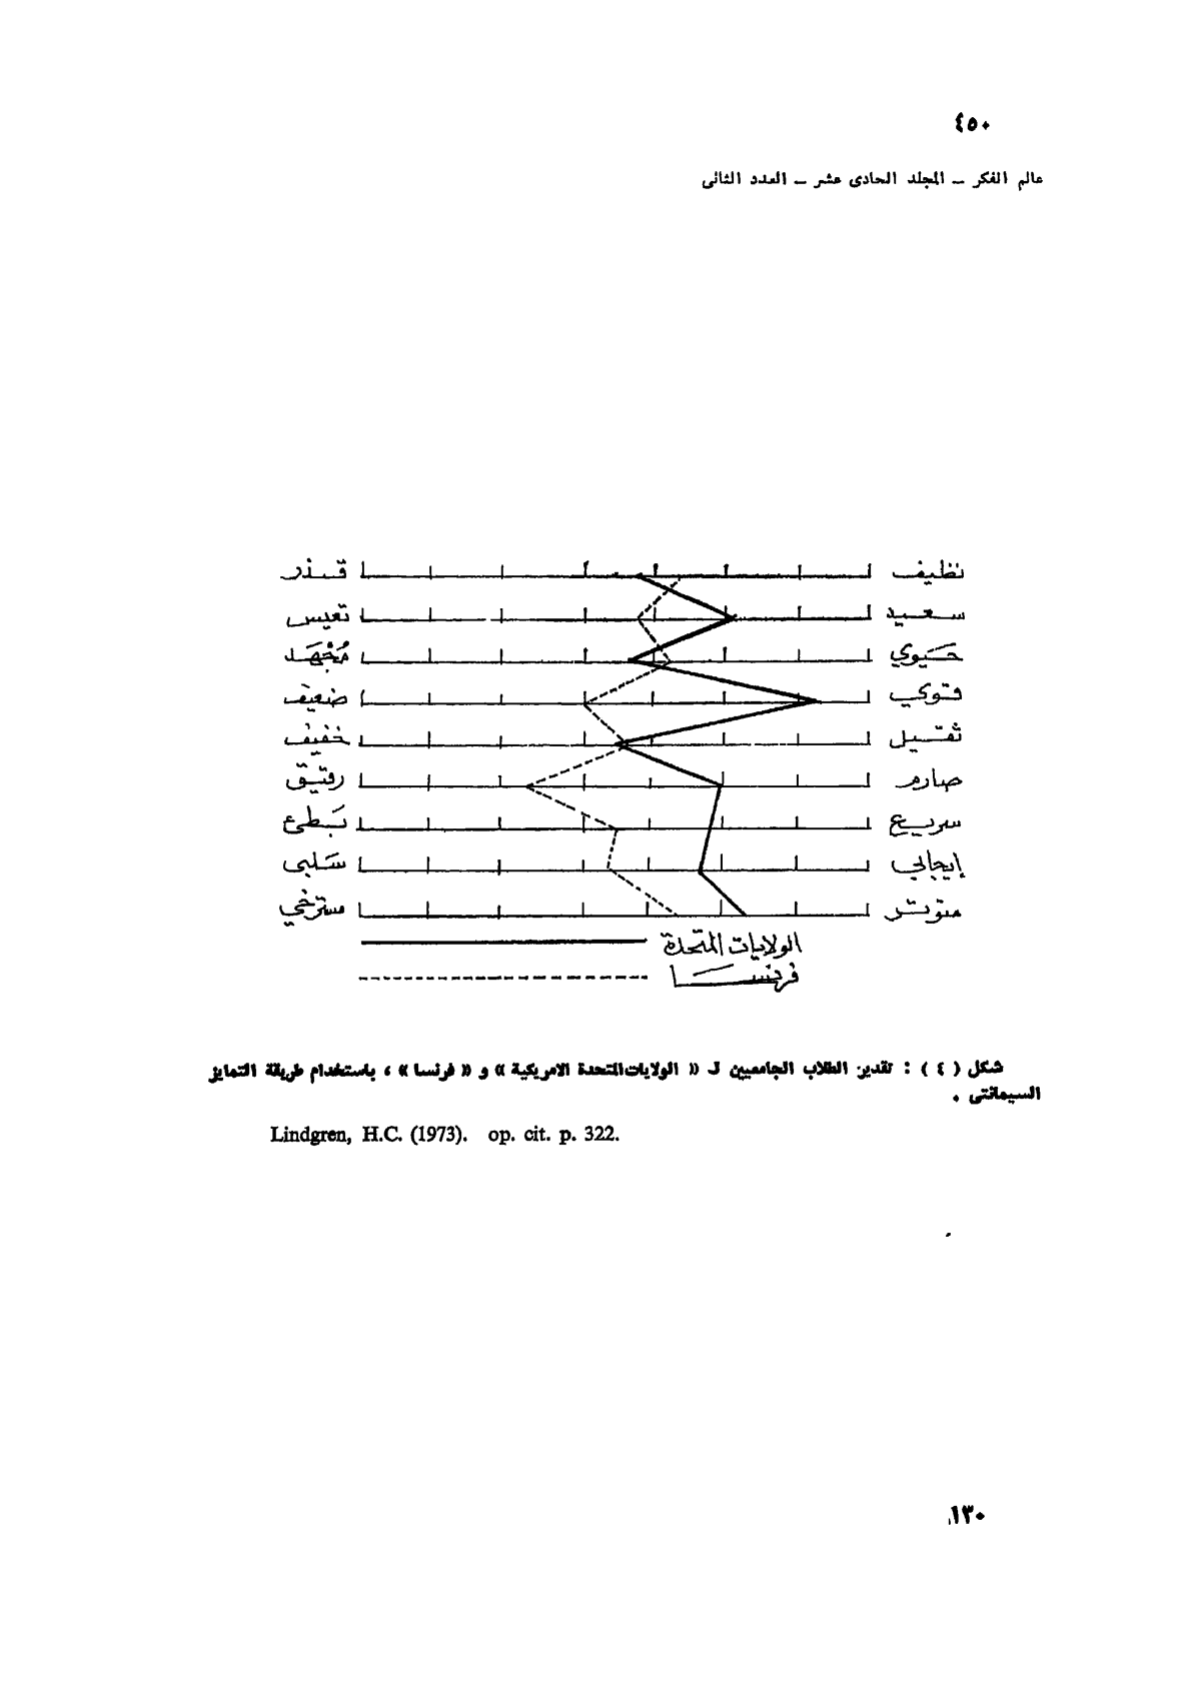 ٤٥٠
عالم الفكر ــ المجلد الحادى عشر ــ العدد الثانى
نظيف قذر
سعيد تعيس
حَيَوي مُجْهَد
قوي ضعيف
ثقيل خفيف
صارم رقيق
سريع بَطئ
إيجابي سَلبى
متوتر مسترخي
الولايات المتحدة
فرنسا
شكل ( ٤ ) : تقدير الطلاب الجامعيين لـ « الولايات المتحدة الامريكية » و « فرنسا » ، باستخدام طريقة التمايز
السيمانتى .
Lindgren, H.C. (1973). op. cit. p. 322.
١٣٠